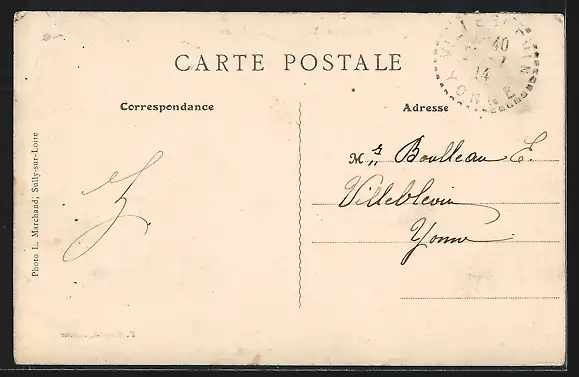 CARTE POSTALE
Correspondance
Adresse
Mr Boulleau E.
Villeblevin
Yonne
Photo L. Marchand, Sully-sur-Loire
40
14
YONNE